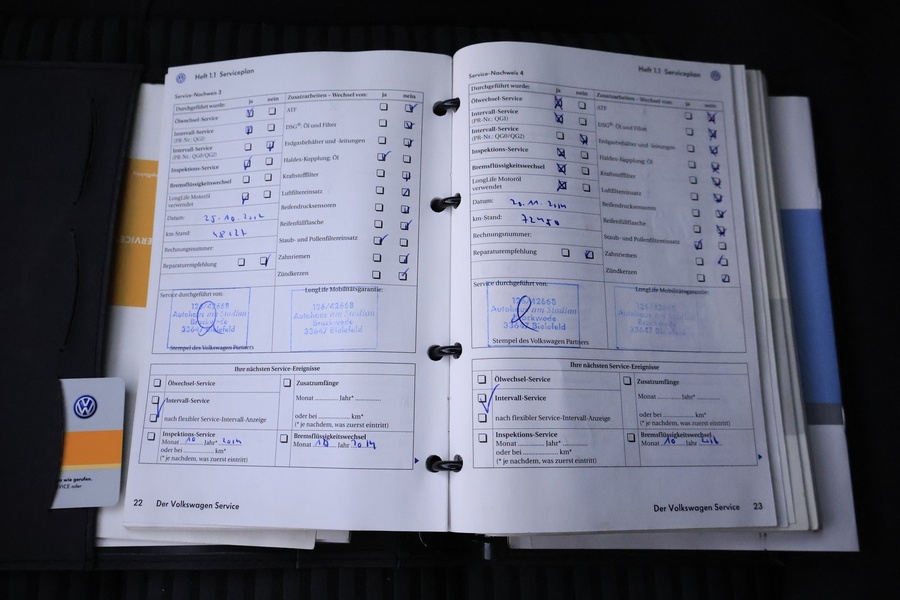 Heft 1.1 Serviceplan
Service-Nachweis 3
Durchgeführt wurde: ja nein
Ölwechsel-Service
Intervall-Service
(PR-Nr.: QG1)
Intervall-Service
(PR-Nr.: QG0/QG2)
Inspektions-Service
Bremsflüssigkeitswechsel
LongLife Motoröl
verwendet
Datum: 25.10.2012
km-Stand:
Rechnungsnummer:
Reparaturempfehlung
Zusatzarbeiten – Wechsel von: ja nein
ATF
DSG®: Öl und Filter
Erdgasbehälter und -leitungen
Haldex-Kupplung: Öl
Kraftstofffilter
Luftfiltereinsatz
Reifendrucksensoren
Reifenfüllflasche
Staub- und Pollenfiltereinsatz
Zahnriemen
Zündkerzen
Service durchgeführt von:
126/42668
Autohaus am Stadion
Brackwede
33647 Bielefeld
Stempel des Volkswagen Partners
LongLife Mobilitätsgarantie:
126/42668
Autohaus am Stadion
Brackwede
33647 Bielefeld
Ihre nächsten Service-Ereignisse
Ölwechsel-Service
Intervall-Service
nach flexibler Service-Intervall-Anzeige
Inspektions-Service
Monat 10 Jahr* 2014
oder bei km*
(* je nachdem, was zuerst eintritt)
Zusatzumfänge
Monat Jahr*
oder bei km*
(* je nachdem, was zuerst eintritt)
Bremsflüssigkeitswechsel
Monat 10 Jahr 2014
22 Der Volkswagen Service
Heft 1.1 Serviceplan
Service-Nachweis 4
Durchgeführt wurde: ja nein
Ölwechsel-Service
Intervall-Service
(PR-Nr.: QG1)
Intervall-Service
(PR-Nr.: QG0/QG2)
Inspektions-Service
Bremsflüssigkeitswechsel
LongLife Motoröl
verwendet
Datum: 20.11.2014
km-Stand: 72450
Rechnungsnummer:
Reparaturempfehlung
Zusatzarbeiten – Wechsel von: ja nein
ATF
DSG®: Öl und Filter
Erdgasbehälter und -leitungen
Haldex-Kupplung: Öl
Kraftstofffilter
Luftfiltereinsatz
Reifendrucksensoren
Reifenfüllflasche
Staub- und Pollenfiltereinsatz
Zahnriemen
Zündkerzen
Service durchgeführt von:
126/42668
Autohaus am Stadion
Brackwede
33647 Bielefeld
Stempel des Volkswagen Partners
LongLife Mobilitätsgarantie:
Ihre nächsten Service-Ereignisse
Ölwechsel-Service
Intervall-Service
nach flexibler Service-Intervall-Anzeige
Inspektions-Service
Monat Jahr*
oder bei km*
(* je nachdem, was zuerst eintritt)
Zusatzumfänge
Monat Jahr*
oder bei km*
(* je nachdem, was zuerst eintritt)
Bremsflüssigkeitswechsel
Monat 10 Jahr 2016
Der Volkswagen Service 23
SERVICE